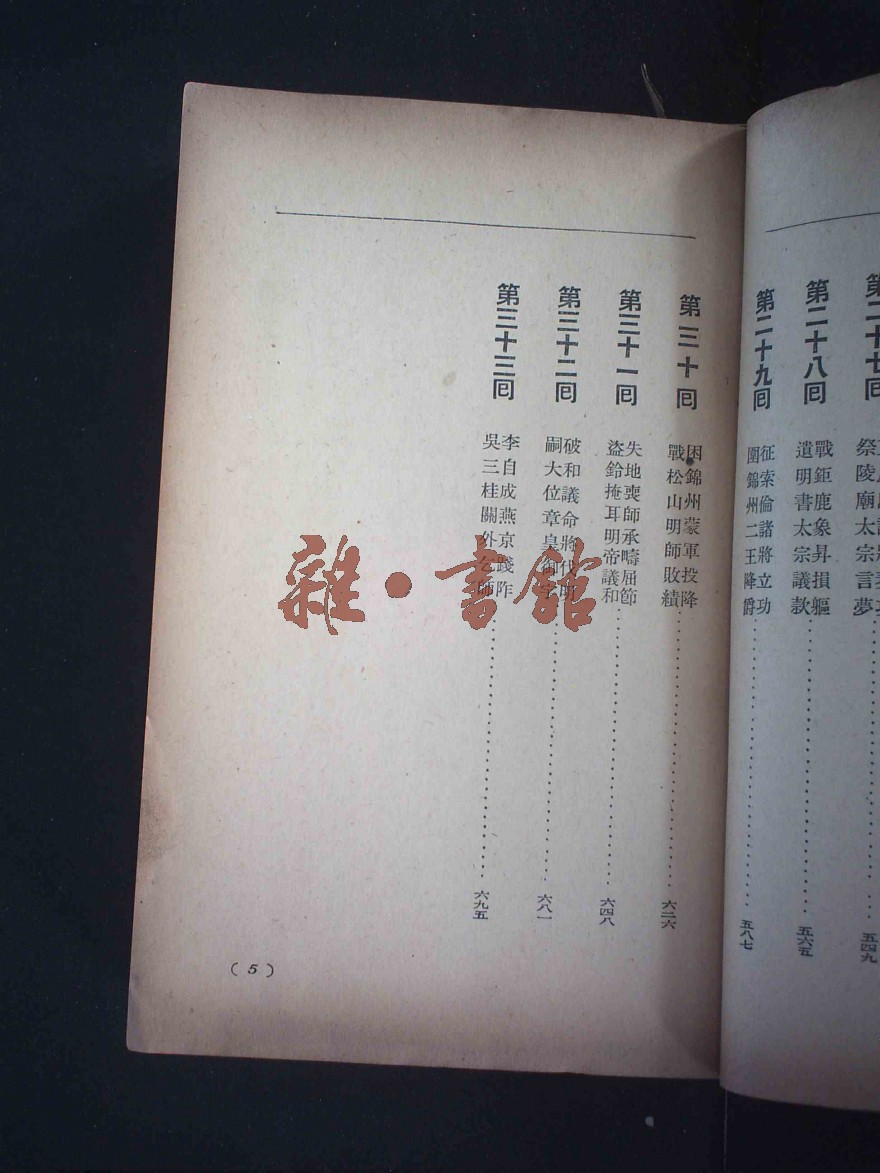 第二十七囘
祭陵廟太宗言夢
五四九
第二十八囘
戰鉅鹿象昇損軀
遣明書太宗議款
五六五
第二十九囘
征索倫諸將立功
圍錦州二王降爵
五八七
第三十囘
困錦州蒙軍投降
戰松山明師敗績
六二六
第三十一囘
失地喪師承疇屈節
盜鈴掩耳明帝議和
六四八
第三十二囘
破和議命將伐明
嗣大位章皇御宇
六八一
第三十三囘
李自成燕京踐阼
吳三桂關外乞師
六九五
( 5 )
雜·書館